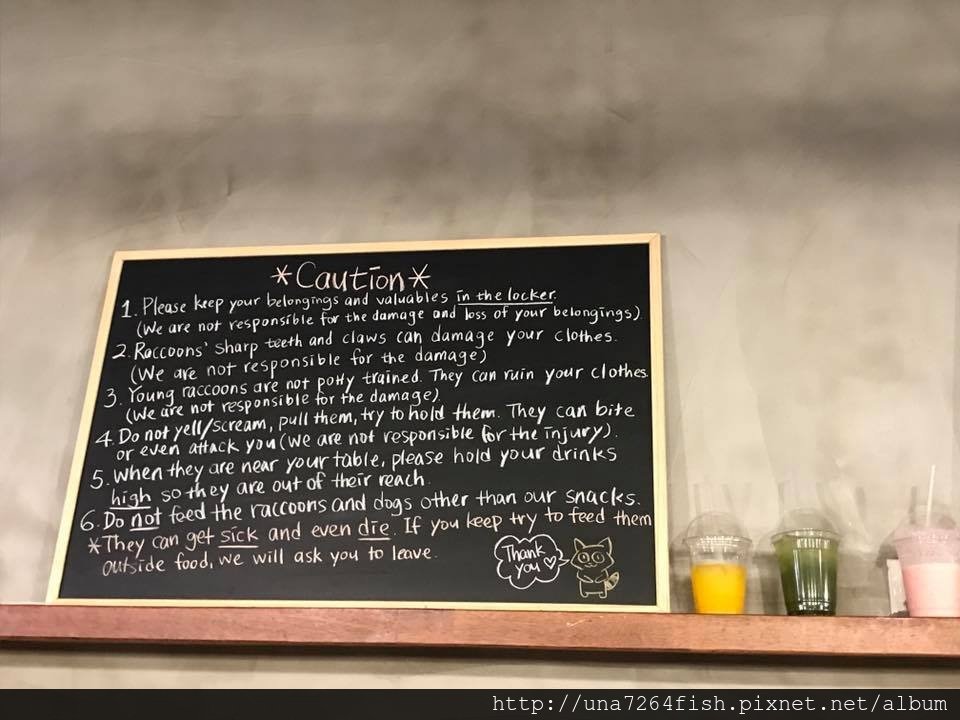 *Caution*
1. Please keep your belongings and valuables in the locker.
(We are not responsible for the damage and loss of your belongings).
2. Raccoons' sharp teeth and claws can damage your clothes.
(We are not responsible for the damage)
3. Young raccoons are not potty trained. They can ruin your clothes.
(We are not responsible for the damage).
4. Do not yell/scream, pull them, try to hold them. They can bite
or even attack you (We are not responsible for the injury).
5. When they are near your table, please hold your drinks
high so they are out of their reach.
6. Do not feed the raccoons and dogs other than our snacks.
*They can get sick and even die. If you keep try to feed them
outside food, we will ask you to leave.
Thank
you ♡
http://una7264fish.pixnet.net/album